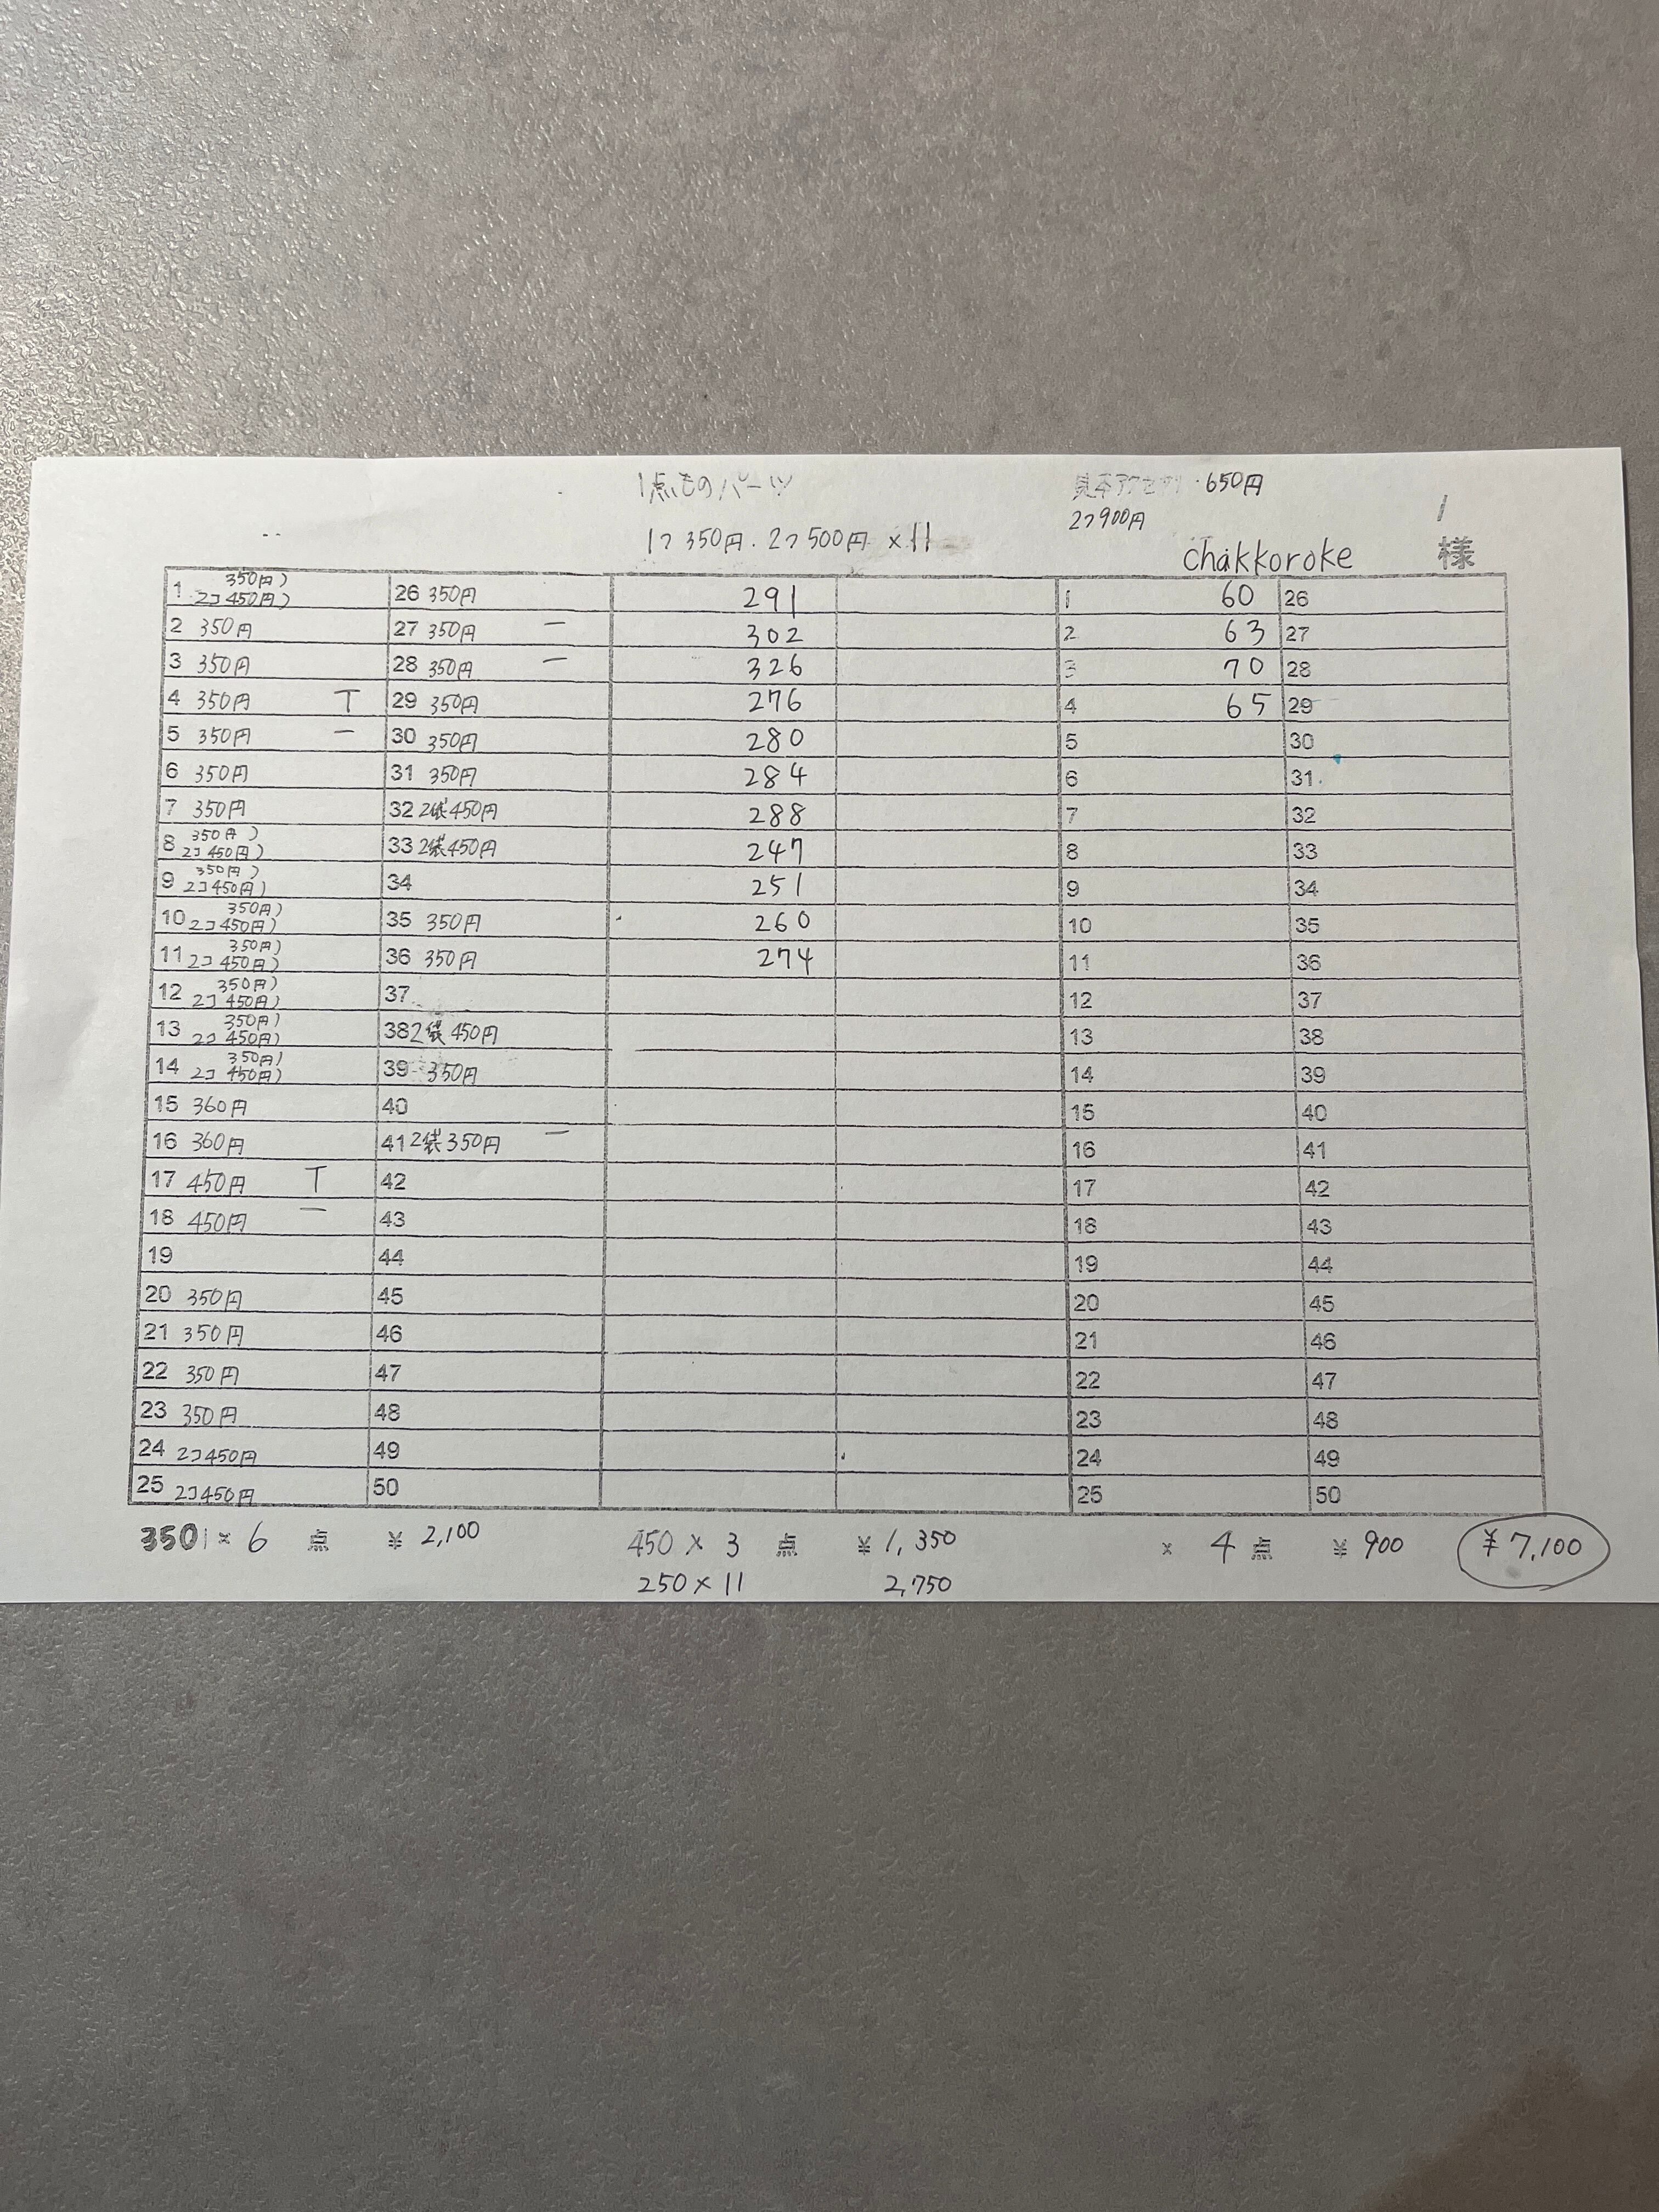 1点ものパーツ
見本アクセサリ・650円
1つ350円・2つ500円 ×11
2つ900円
chakkoroke 様
1 350円) 2コ450円) 26 350円 291 1 60 26
2 350円 27 350円 一 302 2 63 27
3 350円 28 350円 一 326 3 70 28
4 350円 T 29 350円 276 4 65 29
5 350円 一 30 350円 280 5 30
6 350円 31 350円 284 6 31
7 350円 32 2袋450円 288 7 32
8 350円) 2コ450円) 33 2袋450円 247 8 33
9 350円) 2コ450円) 34 251 9 34
10 350円) 2コ450円) 35 350円 260 10 35
11 350円) 2コ450円) 36 350円 274 11 36
12 350円) 2コ450円) 37 12 37
13 350円) 2コ450円) 38 2袋450円 13 38
14 350円) 2コ450円) 39 350円 14 39
15 360円 40 15 40
16 360円 41 2袋350円 一 16 41
17 450円 T 42 17 42
18 450円 一 43 18 43
19 44 19 44
20 350円 45 20 45
21 350円 46 21 46
22 350円 47 22 47
23 350円 48 23 48
24 2コ450円 49 24 49
25 2コ450円 50 25 50
350 × 6 点 ¥ 2,100 450 × 3 点 ¥ 1,350 × 4 点 ¥ 900 ¥7,100
250×11 2,750